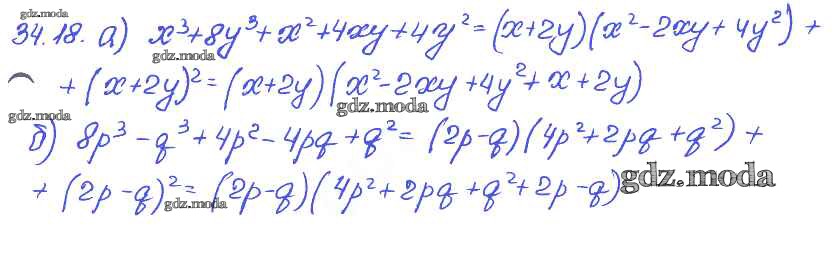 gdz.moda
34.18. а) x³+8y³+x²+4xy+4y²=(x+2y)(x²-2xy+4y²)+
gdz.moda
+(x+2y)²=(x+2y)(x²-2xy+4y²+x+2y)
gdz.moda
gdz.moda
б) 8p³-q³+4p²-4pq+q²=(2p-q)(4p²+2pq+q²)+
+(2p-q)²=(2p-q)(4p²+2pq+q²+2p-q)
gdz.moda
gdz.moda